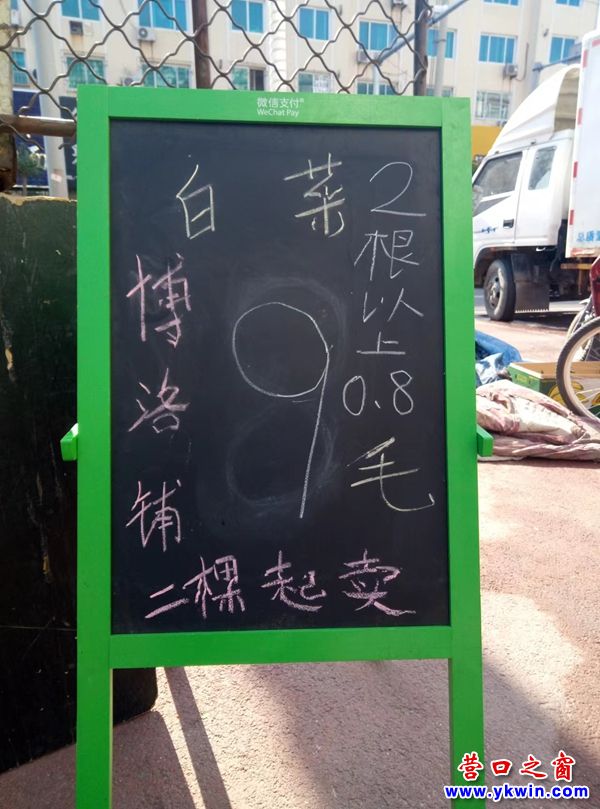 微信支付®
WeChat Pay
白菜
2根以上
0.8
毛
9
博洛铺
二棵起卖
营口之窗
www.ykwin.com